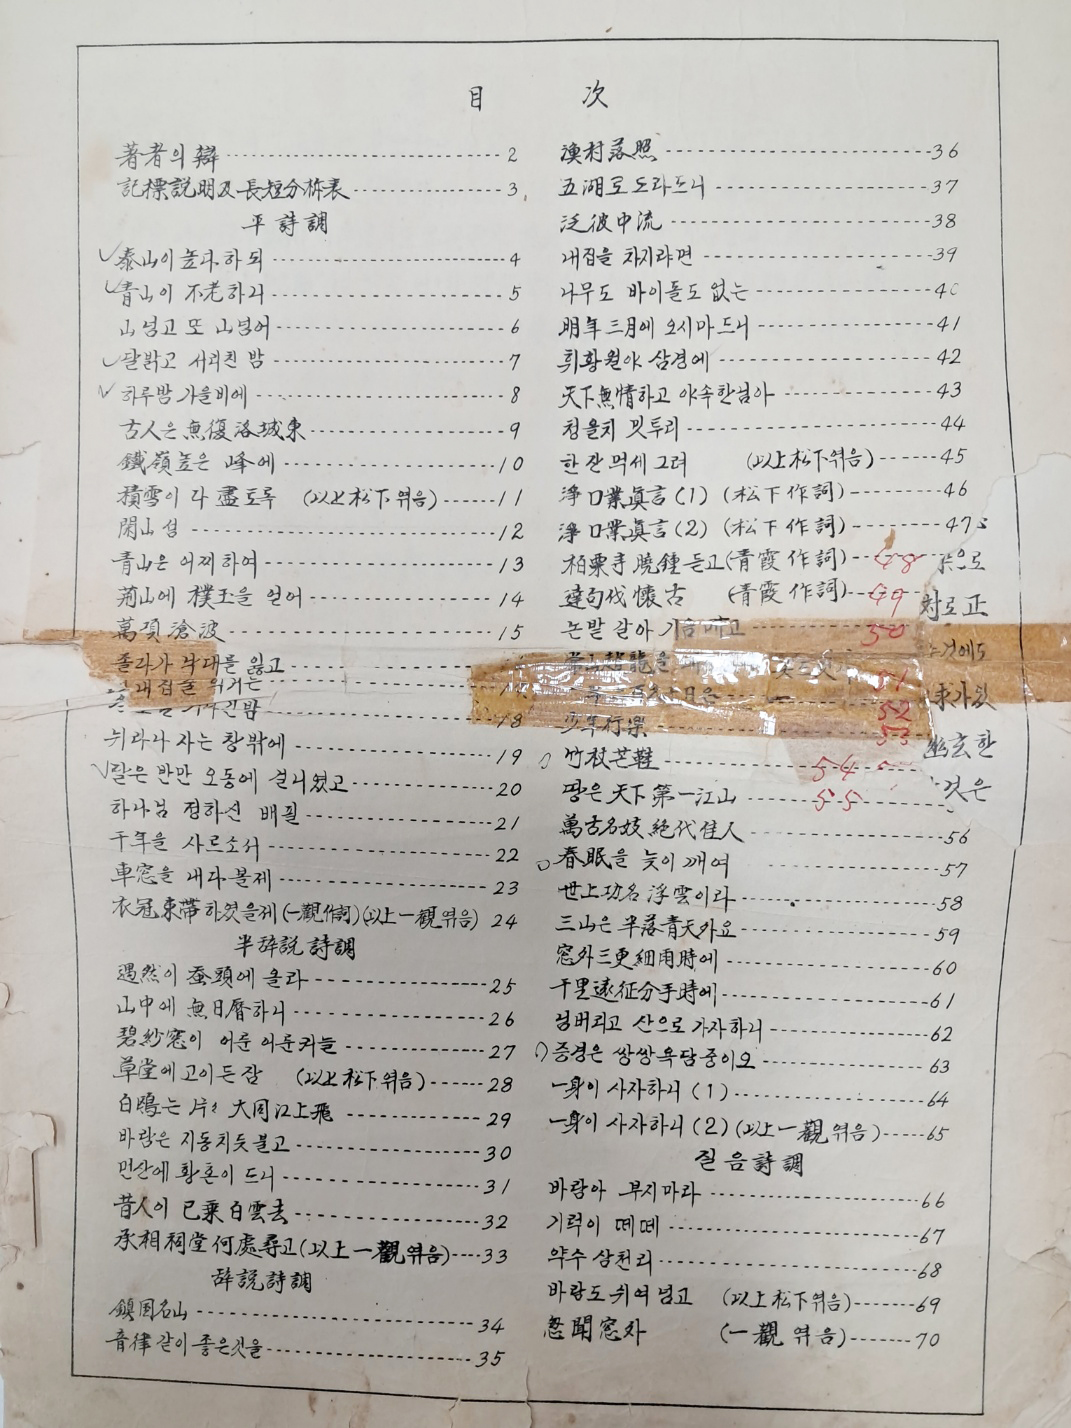 目 次
著者의 辯 2
記標説明及長短分析表 3
平詩調
泰山이 높다하되 4
青山이 不老하니 5
山넘고 또 山넘어 6
달밝고 서리친 밤 7
하루밤 가을비에 8
古人은 無復洛城東 9
鐵嶺높은 峰에 10
積雪이 다 盡토록 (以上 松下 엮음) 11
閑山섬 12
青山은 어찌하여 13
荊山에 樸玉을 얻어 14
萬頃滄波 15
를 잃고
18
뉘라나 자는 창밖에 19
달은 반만 오동에 걸니였고 20
하나님 정하신 배필 21
千年을 사르소서 22
車窓을 내다볼제 23
衣冠束帶하였을제 (一觀作詞)(以上 一觀 엮음) 24
半辞説詩調
遇然이 蚕頭에 올라 25
山中에 無日曆하니 26
碧紗窓이 어룬 어룬커늘 27
草堂에 고이든잠 (以上 松下 엮음) 28
白鷗는 片々 大同江上飛 29
바람은 지동치듯 불고 30
먼산에 황혼이 드니 31
昔人이 已乘白雲去 32
承相祠堂何處尋고 (以上 一觀 엮음) 33
辞説詩調
鎮国名山 34
音律같이 좋은것을 35
漁村落照 36
五湖로 도라드니 37
泛彼中流 38
내집을 차지랴면 39
나무도 바이돌도 없는 40
明年三月에 오시마드니 41
휘황월야 삼경에 42
天下無情하고 야속한님아 43
청을치 밋투리 44
한잔 먹세그려 (以上 松下 엮음) 45
淨口業眞言 (1) (松下 作詞) 46
淨口業眞言 (2) (松下 作詞) 47
柏栗寺 曉鍾 듣고 (青霞 作詞) 48
達句伐 懷古 (青霞 作詞) 49
논밭 갈아 50
51
52
少年行樂 53
竹杖芒鞋 54
땅은 天下第一江山 55
萬古名妓 絶代佳人 56
春眠을 늦이 깨여 57
世上功名 浮雲이라 58
三山은 半落青天外요 59
窓外三更細雨時에 60
千里遠征分手時에 61
넘버리고 산으로 가자하니 62
증경은 쌍쌍 욕담중이오 63
一身이 사자하니 (1) 64
一身이 사자하니 (2) (以上 一觀 엮음) 65
질음詩調
바람아 부지마라 66
기럭이 떼떼 67
약수 삼천리 68
바람도 쉬여 넘고 (以上 松下 엮음) 69
忽聞窓外 (一觀 엮음) 70
으로
치로 正
것에도
幽玄한
것은